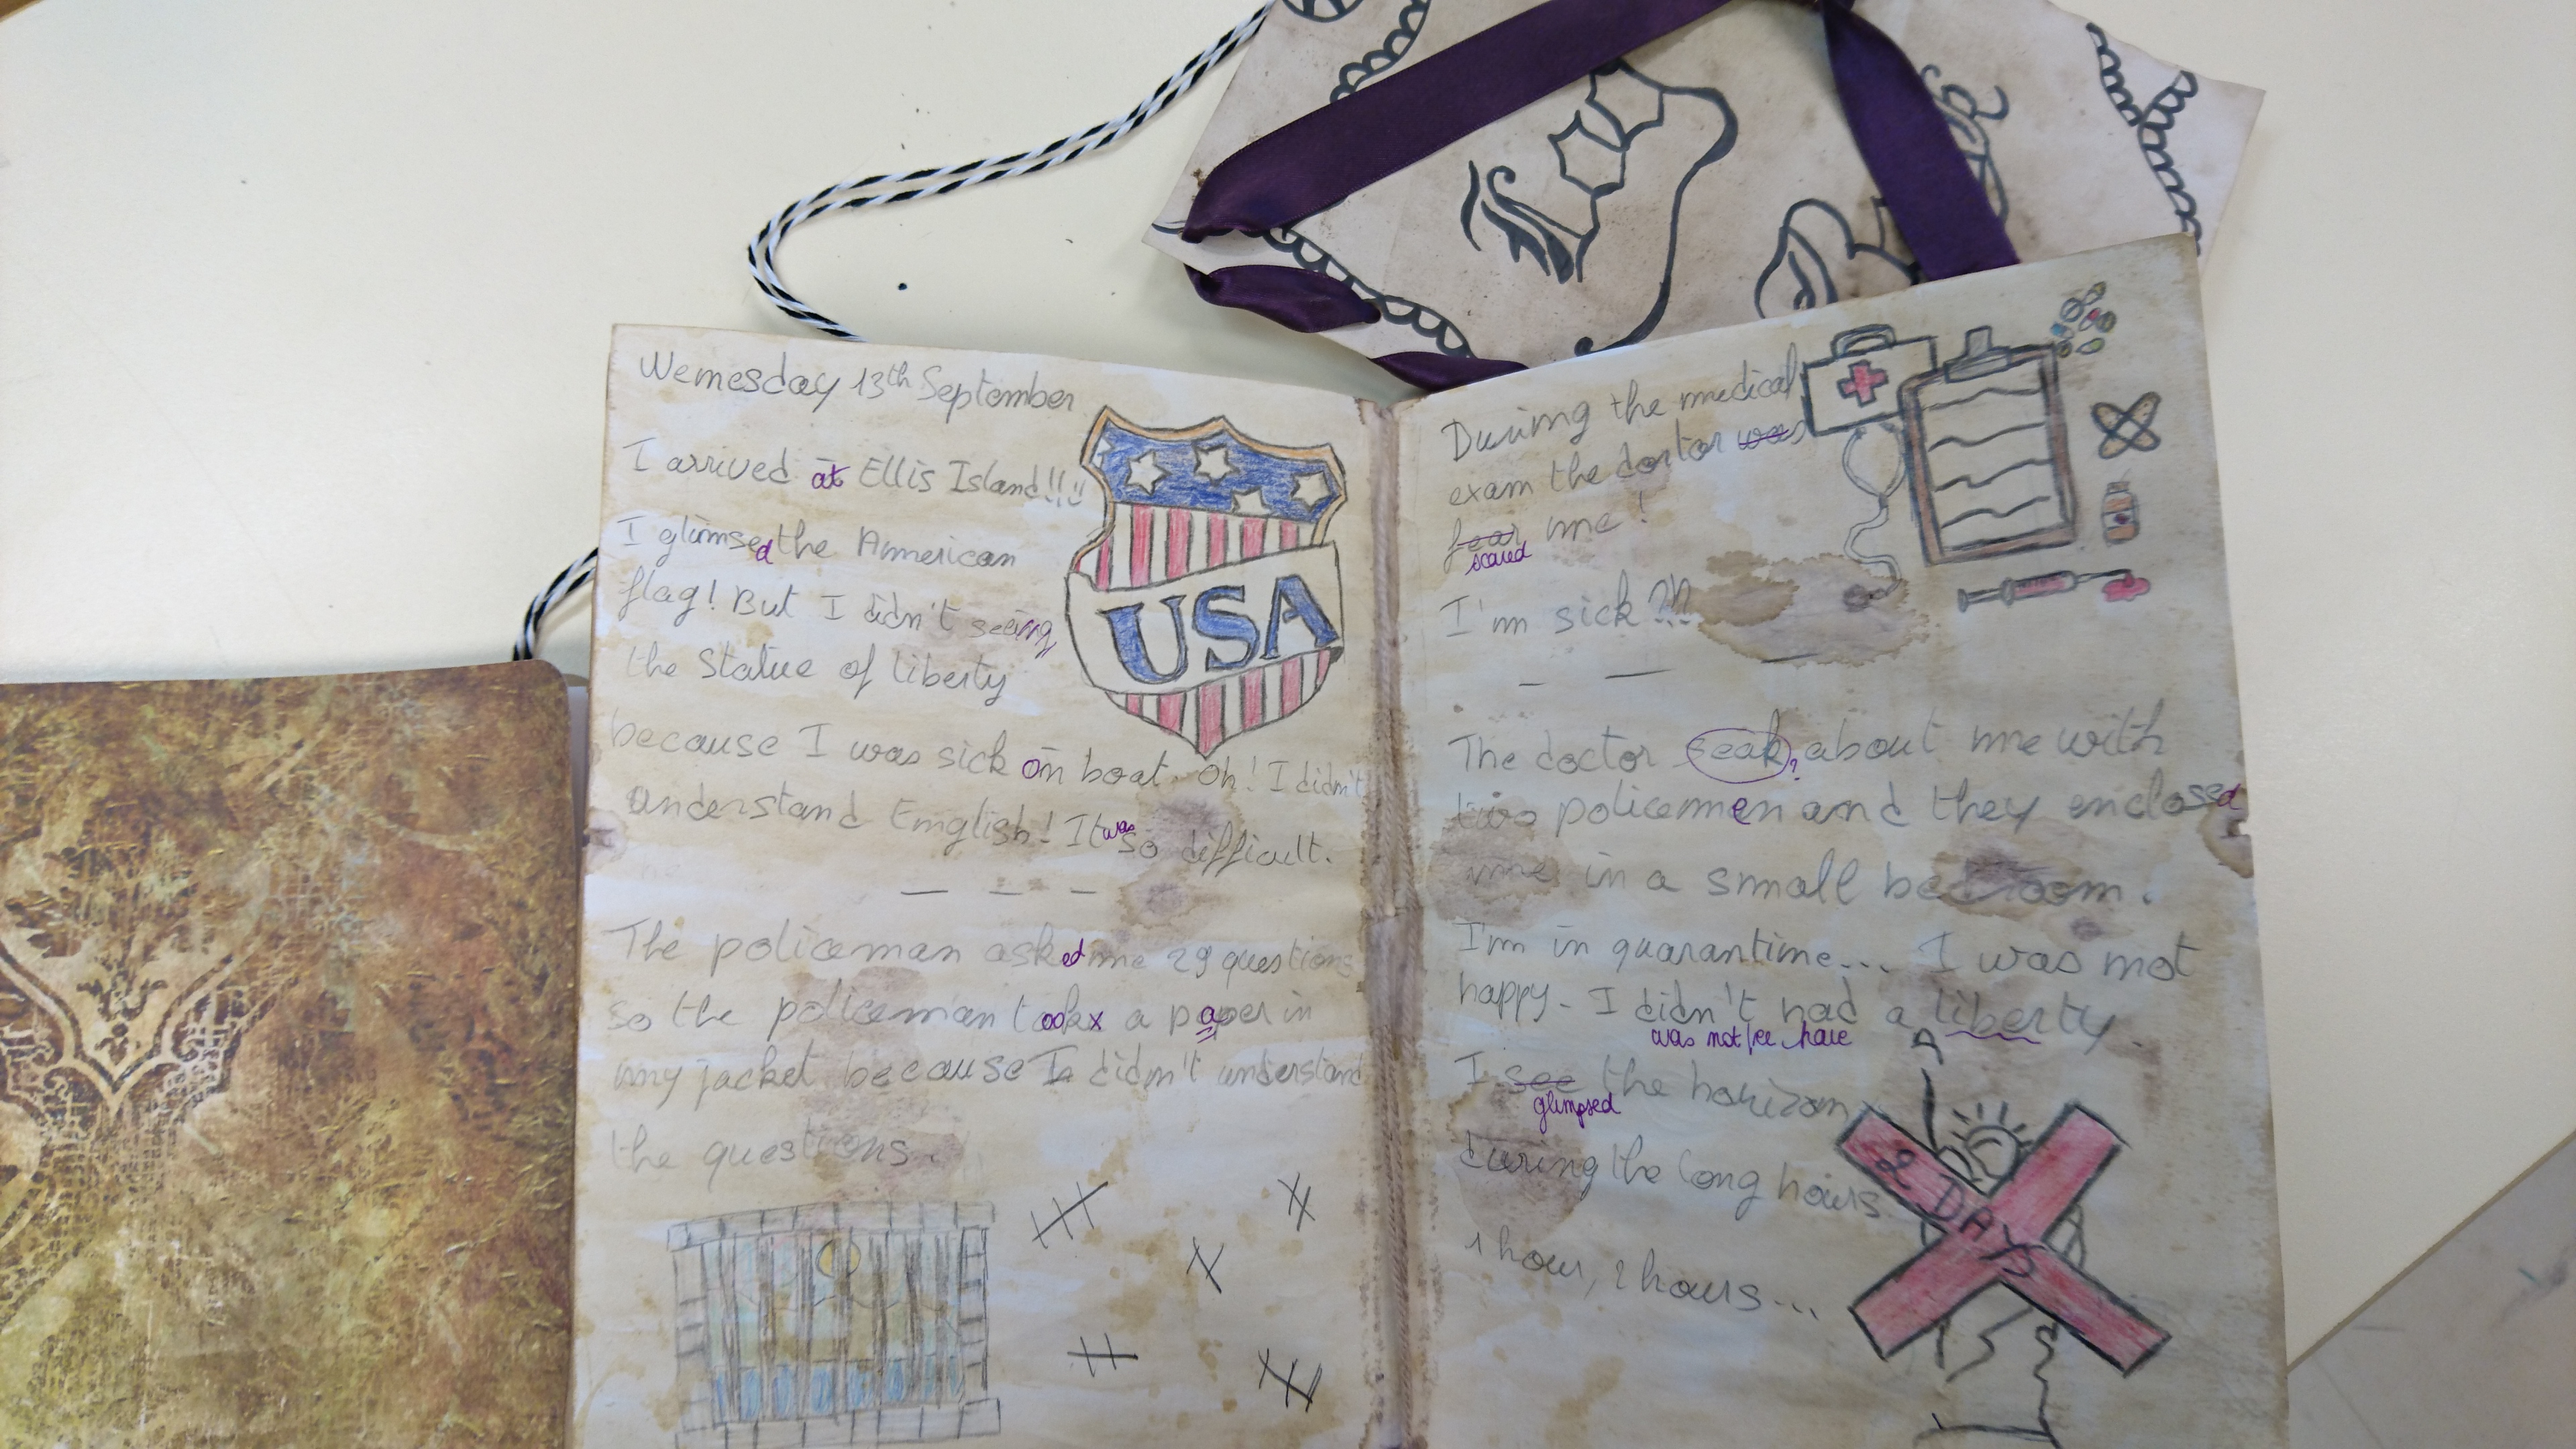 Wemesday 13th September
I arrived at Ellis Island!!
I glimsed the American
flag! But I didn't seeing
the Statue of liberty
because I was sick on boat. Oh! I didn't
understand English! It was so difficult.
USA
The policeman asked me 29 questions
so the policeman took a paper in
my jacket because I didn't understand
the questions.
During the medical
exam the doctor was
fear me!
scared
I'm sick ?!!
The doctor seak ? about me with
two policemen and they enclosed
me in a small bedroom.
I'm in quarantine... I was not
happy. I didn't had a liberty.
was not free have
I see the horizon
glimpsed
during the long hours
1 hour, 2 hours...
2 DAYS